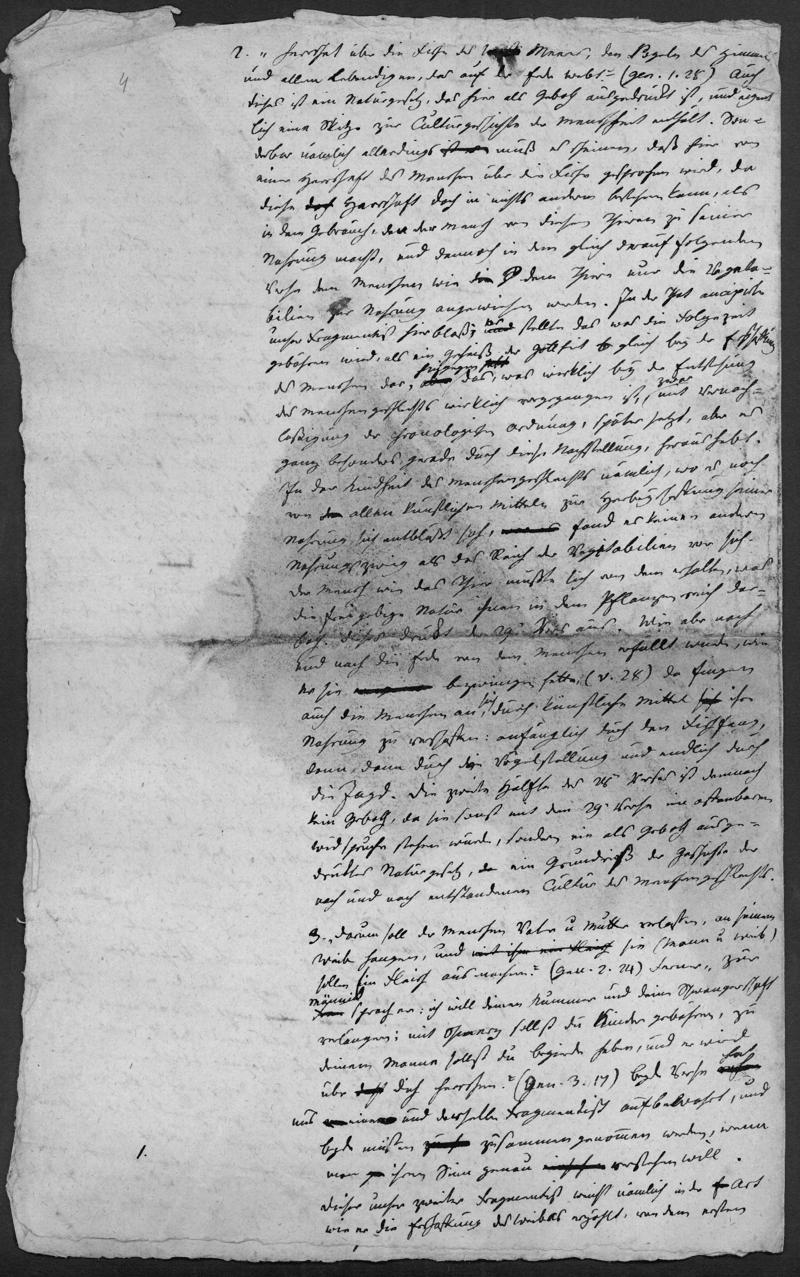 4
2. „ herrschet über die Fische des Meeres, den Vögeln des Himmels
und allem Lebendigen, das auf der Erde webt" (gen. 1. 28) Auch
dieses ist ein Naturgesetz, das hier als Geboth ausgedrückt ist, und eigent
lich eine Skitze zur Culturgeschichte der Menschheit enthält. Son-
derbar nämlich allerdings muß es scheinen, daß hier von
einer Herrschaft des Menschen über die Fische gesprochen wird, da
diese Herrschaft doch in nichts anderm bestehen kann, als
in dem Gebrauch, den der Mensch von diesen Thieren zu seiner
Nahrung macht, und dennoch in dem gleich darauf folgenden
Verse dem Menschen wie dem Thiere nur die Vegeta-
bilien zur Nahrung angewiesen werden. In der That anticipirte
unser Fragmentist hier bloß; stellte das was die Folgezeit
gebähren wird, als ein Geheiß der Gottheit gleich bey der
des Menschen dar, das, was wirklich bey der Entstehung
des Menschengeschlechts wirklich vorgegangen ist, zwar mit Vernach-
lässigung der chronologischen Ordnung, später setzt, aber es
ganz besonders gerade durch diese Nachstellung, heraus hebt.
In der Kindheit des Menschengeschlechts nämlich, wo es noch
von allen künstlichen Mitteln zur Herbeyschaffung seiner
Nahrung sich entblößt sah, fand es keinen andern
Nahrungszweig als das Reich der Vegetabilien vor sich.
Der Mensch wie das Thier mußte sich von dem erhalten, was
die freygebige Natur ihnen in dem Pflanzenreich dar-
both. Dieses drückt der 29te Vers aus. Wie aber nach
und nach die Erde von den Menschen erfüllt wurde, wie
sie bezwungen hatte, (v. 28) da fingen
auch die Menschen an, sich durch künstliche Mittel ihre
Nahrung zu verschaffen: anfänglich durch den Fischfang,
dann, dann durch die Vögelstellung und endlich durch
die Jagd. Die zweite Hälfte des 28 Verses ist demnach
kein Geboth, da sie sonst mit dem 29 Verse im offenbaren
Widerspruche stehen würde, sondern ein als Geboth ausge-
drücktes Naturgesetz, der ein Grundriß der Geschichte der
nach und nach entstandenen Cultur des Menschengeschlechts.
3. „Darum soll der Menschen Vater u Mutter verlassen, an seinem
Weibe hangen, und sie (Mann u Weib)
sollen ein Fleisch ausmachen." (gen. 2. 24) Ferner „ zur
Männin sprach er: ich will deinen Kummer und deine Schwangerschaft
verlängern; mit Schmerz sollst du Kinder gebähren, zu
deinem Manne sollst du begierde haben, und er wird
über dich herrschen." (Gen. 3. 17) beyde Verse hat
uns und derselbe Fragmentist aufbewahrt, und
beyde müssen zusammengenommen werden, wenn
man ihren Sinn genau verstehen will.
Dieser unser zweiter Fragmentist weicht nämlich in der Art
wie er die Erschaffung des Weibes erzählt, von dem ersten
1.